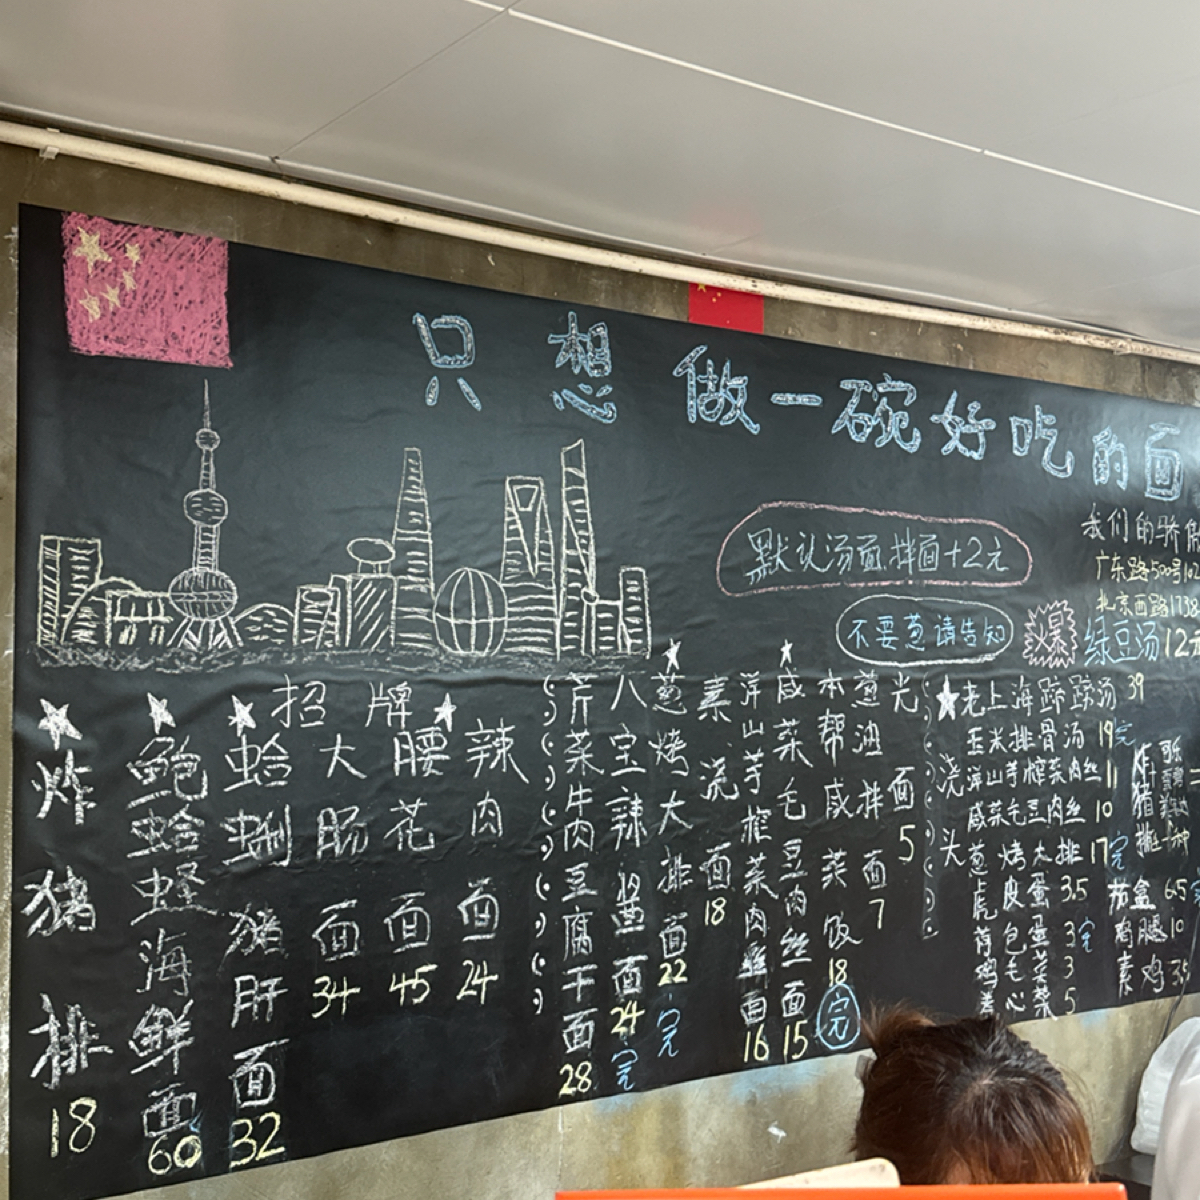 只想做一碗好吃的面
默认汤面,拌面+2元
不要葱请告知
我们的骄傲
广东路500号102
北京西路1738
爆 绿豆汤 12元
招牌
炸猪排 18
鲍蛤蛏海鲜面 60
蛤蜊猪肝面 32
大肠面 34
腰花面 45
辣肉面 24
芹菜牛肉豆腐干面 28
八宝辣酱面 24 完
葱烤大排面 22 完
素浇面 18
洋山芋榨菜肉丝面 16
咸菜毛豆肉丝面 15
本帮咸菜饭 18 完
葱油拌面 7
光面 5
浇头
老上海踪踪汤 39
玉米排骨汤 19 完
洋山芋榨菜肉丝 11
咸菜毛豆肉丝 10
葱烤大排 17 完
虎皮蛋 3.5
荷包蛋 3 完
鸡毛菜 3
5
炸猪排
茄盒 6.5
鸡腿 10
素鸡 3.5